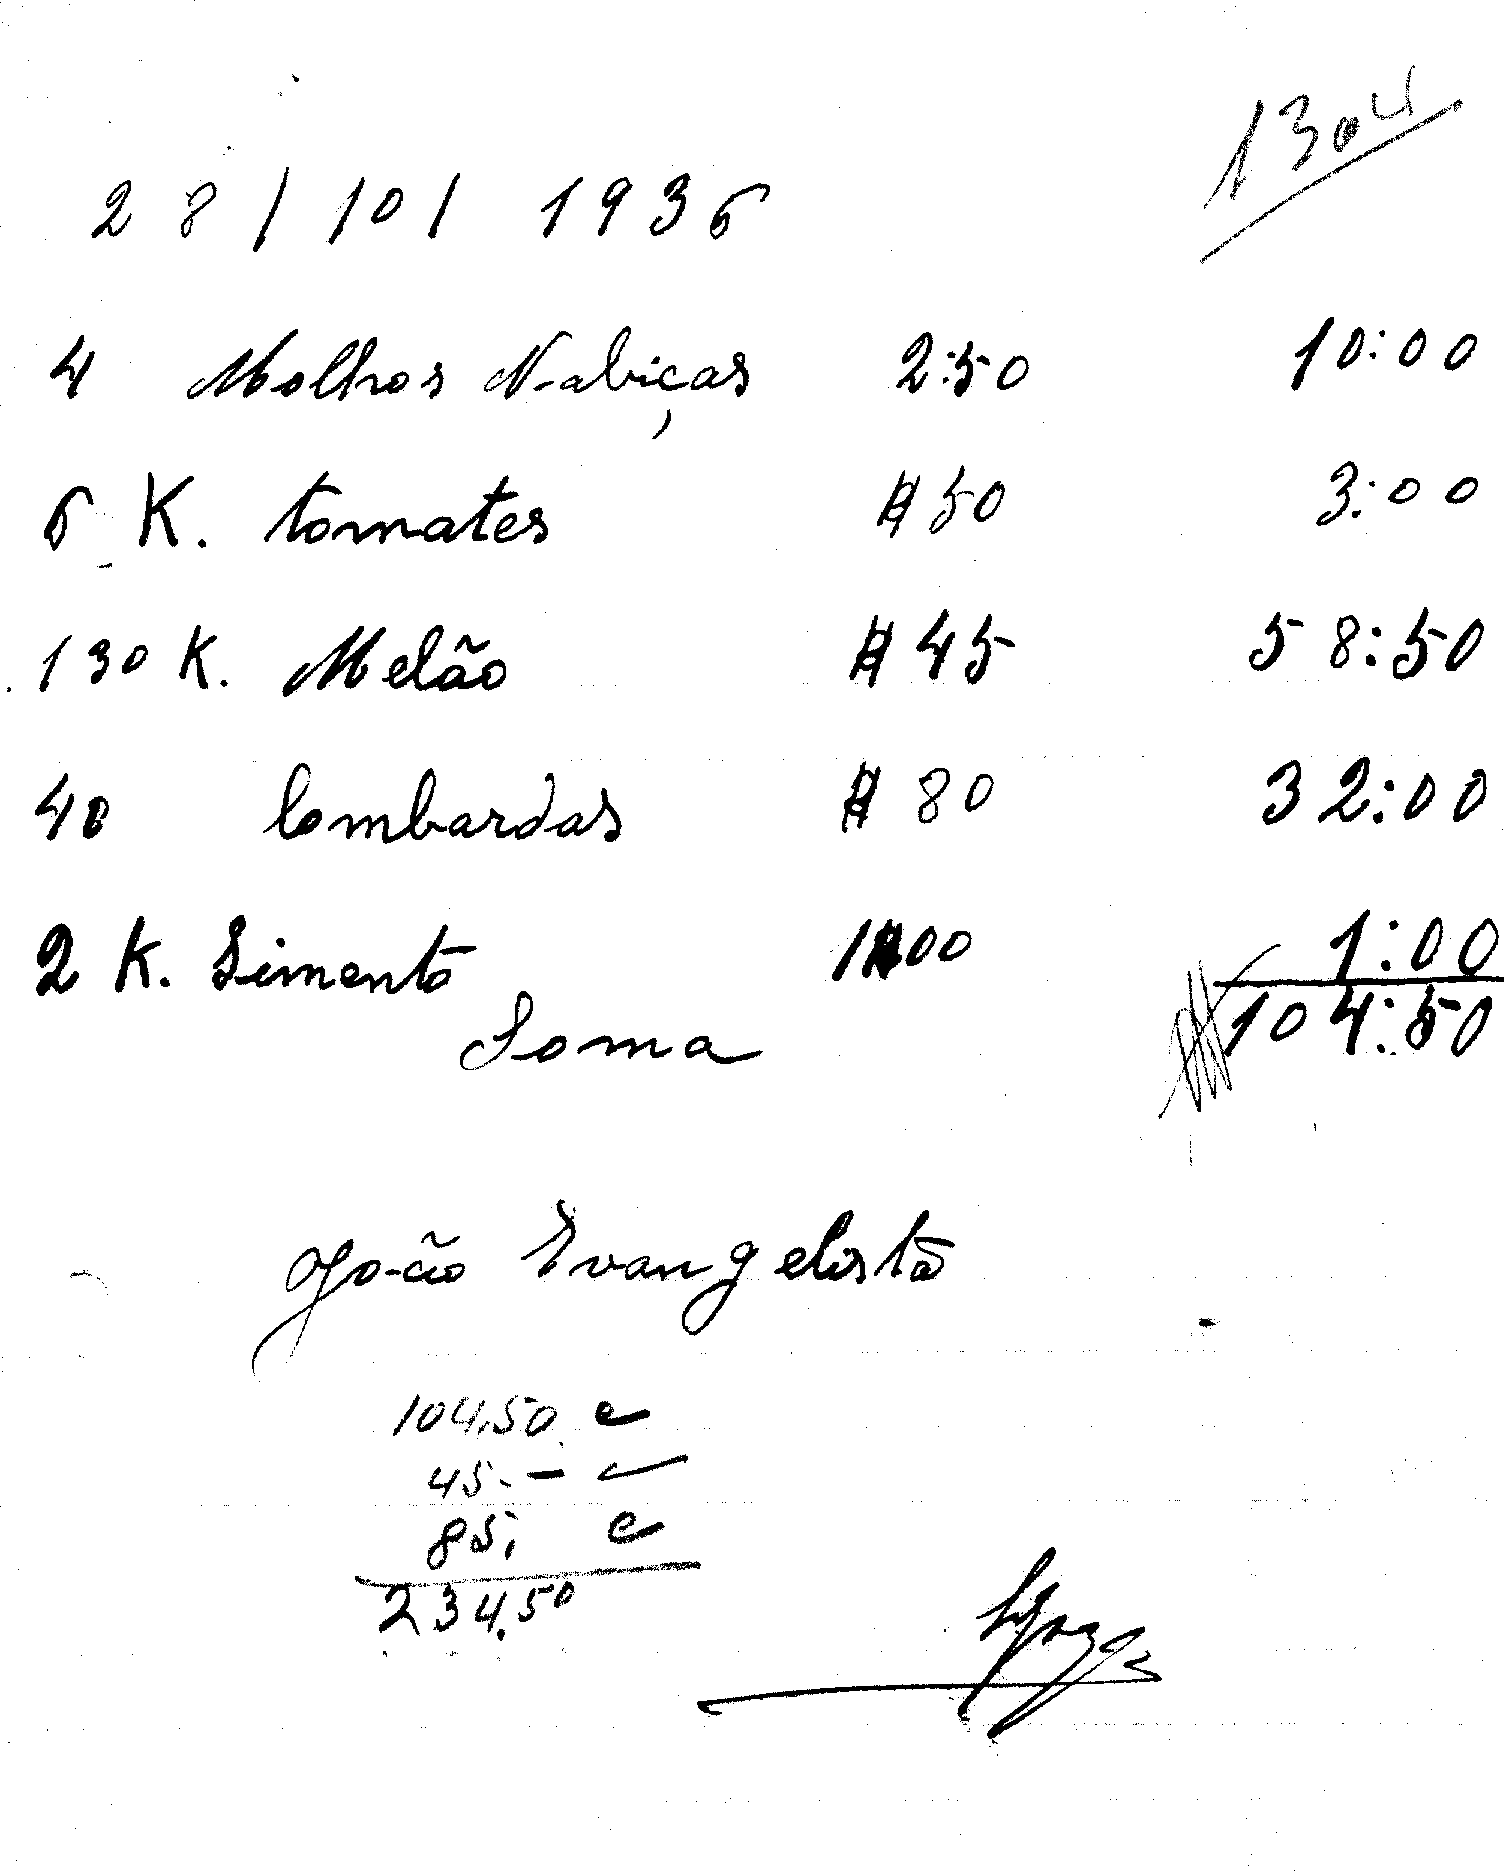 1304
28/10/1936
4 Molhos Nabiças 2:50 10:00
6 K. tomates $50 3:00
130 K. Melão $45 58:50
40 lombardas $80 32:00
2 K. Simento 1$00 1:00
Soma 104:50
João Evangelista
104,50
45. -
85,
234,50